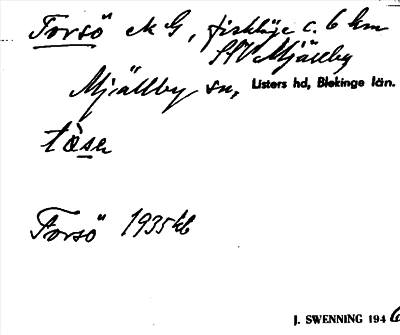 Torsö
fiskläge c. 6 km
SSV Mjällby
Mjällby sn, Listers hd, Blekinge län.
Torsö 1935 kb
J. SWENNING 1946